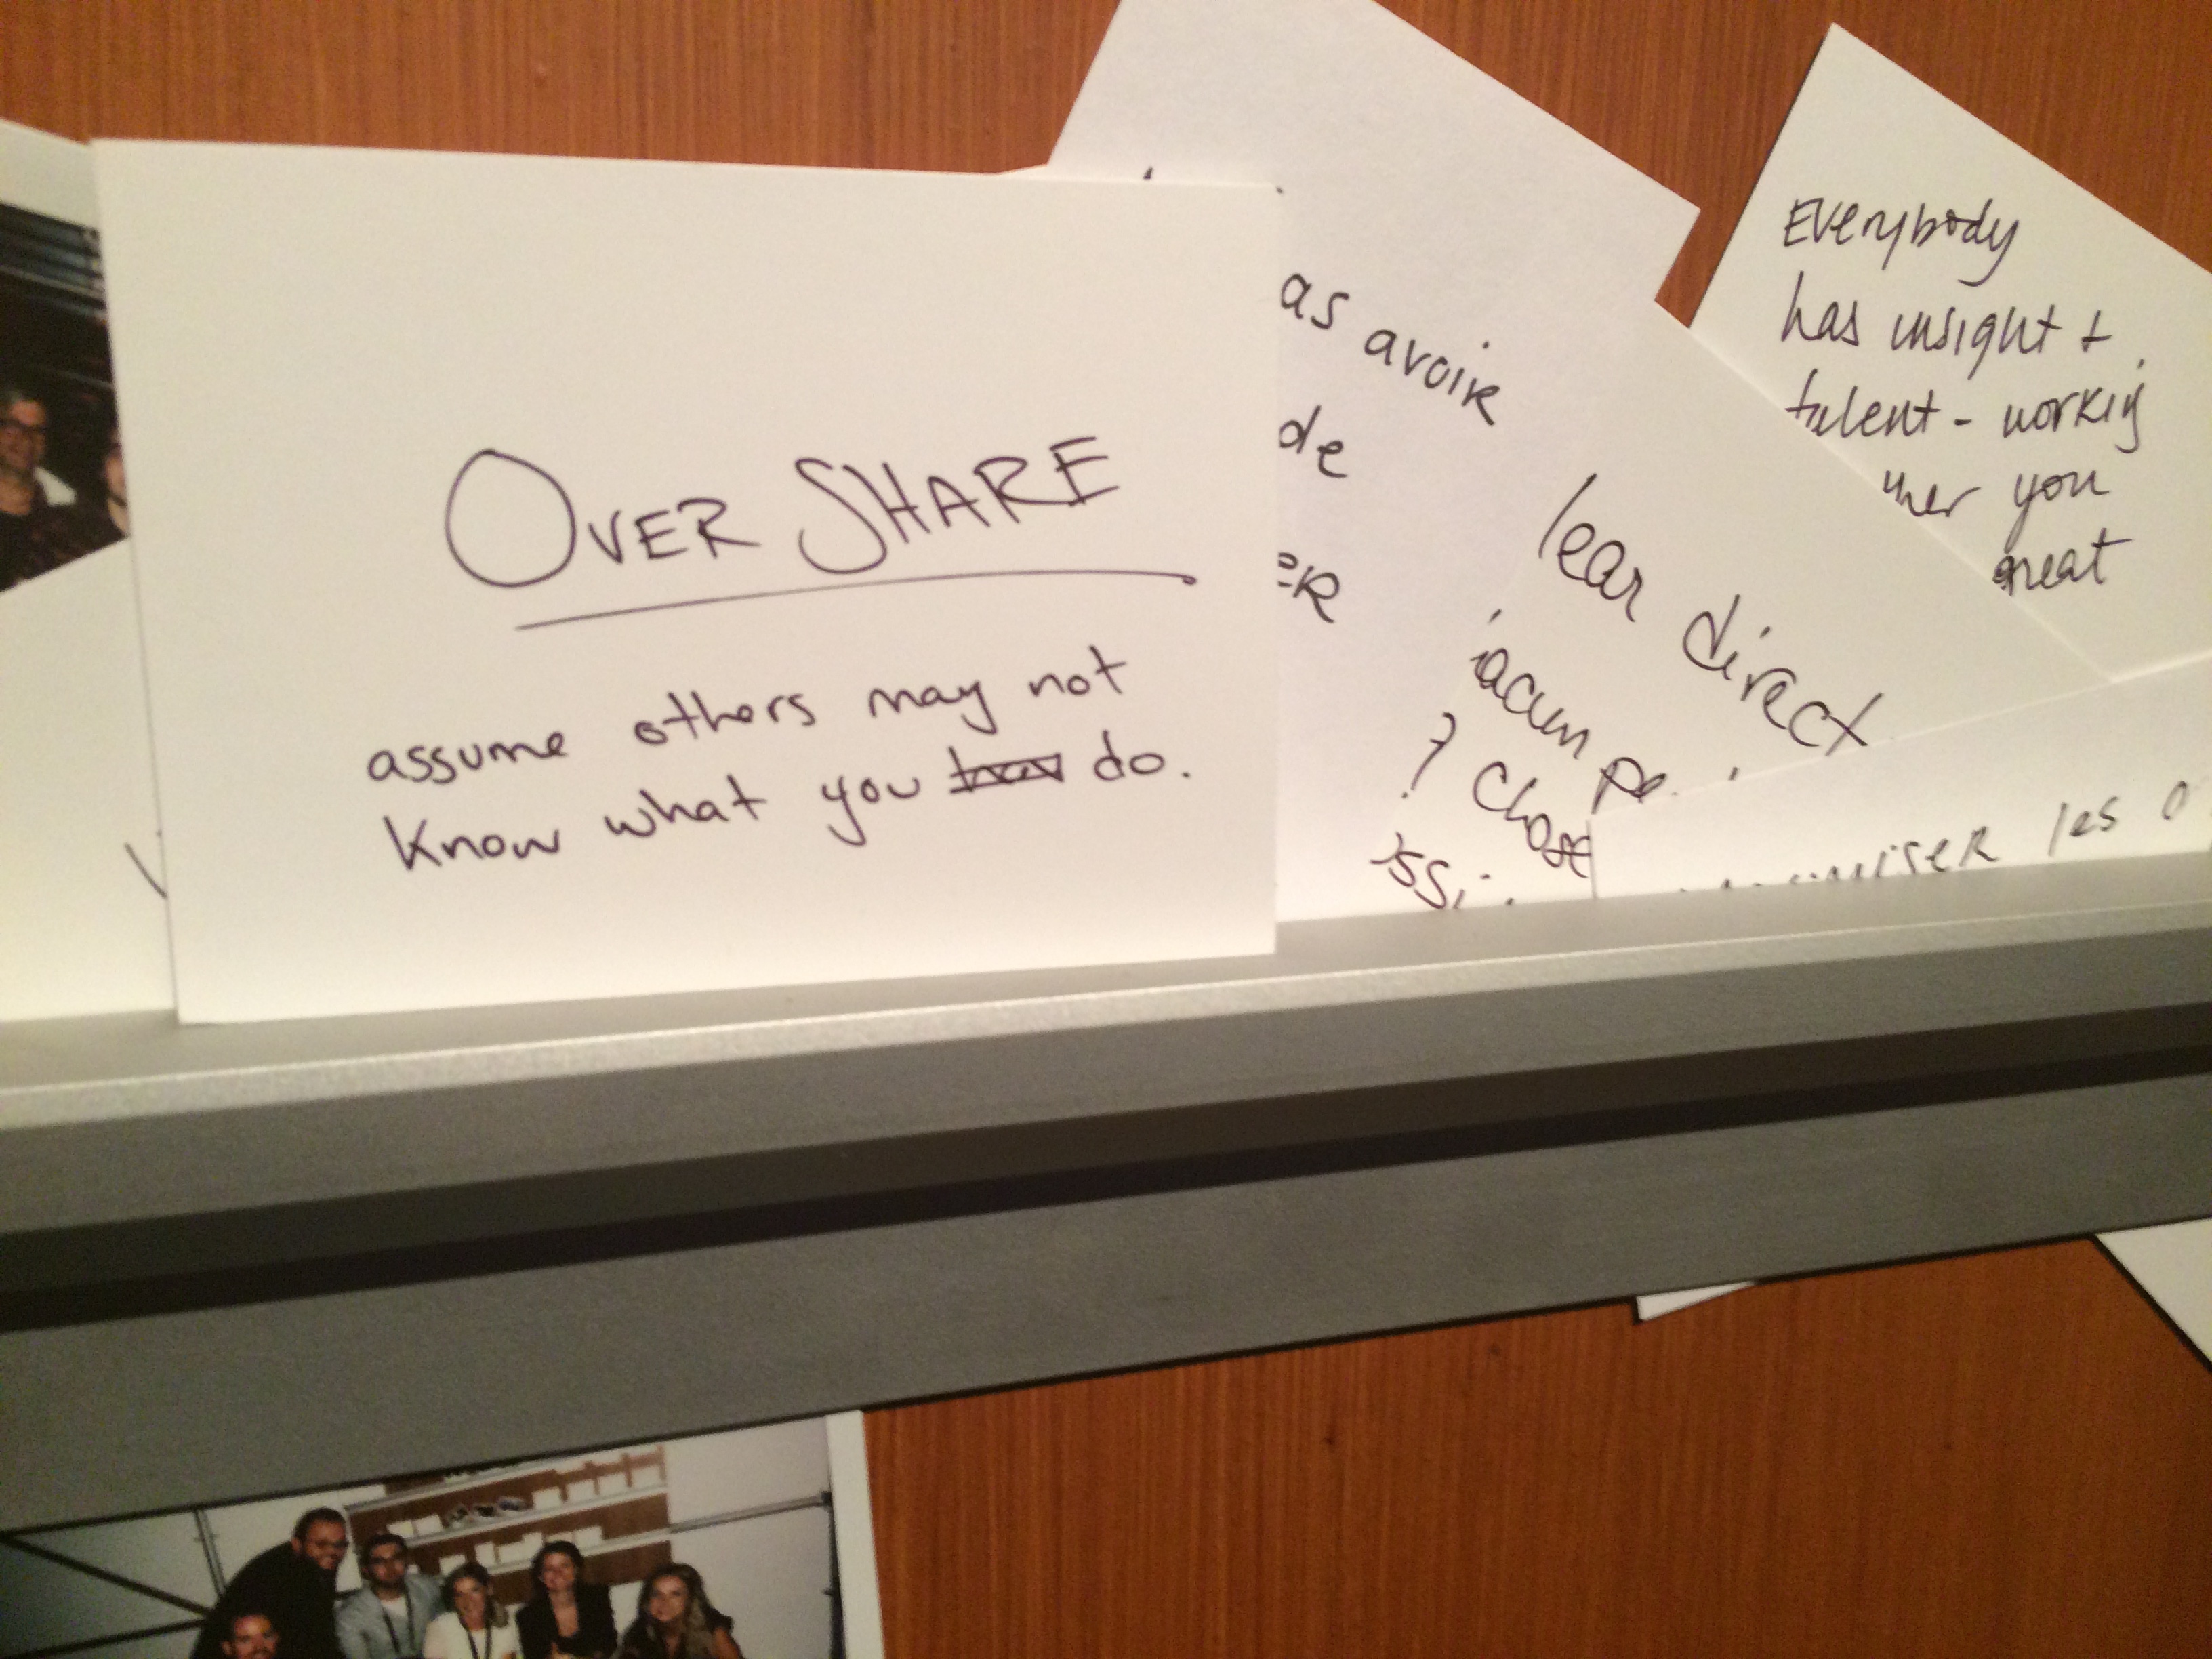 OVER SHARE
assume others may not
know what you do.
as avoir
de
ER
lear direct
acun pe
? chose
ssi
Everybody
has insight +
talent - working
her you
great
miser les o